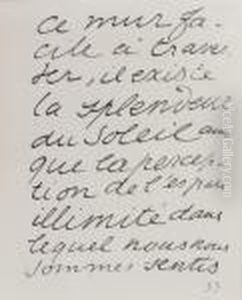 ce mur fa-
cile à traver
ser, il existe
la splendeur
du soleil ainsi
que la percep-
tion de l'espace
illimité dans
lequel nous nous
sommes sentis
33